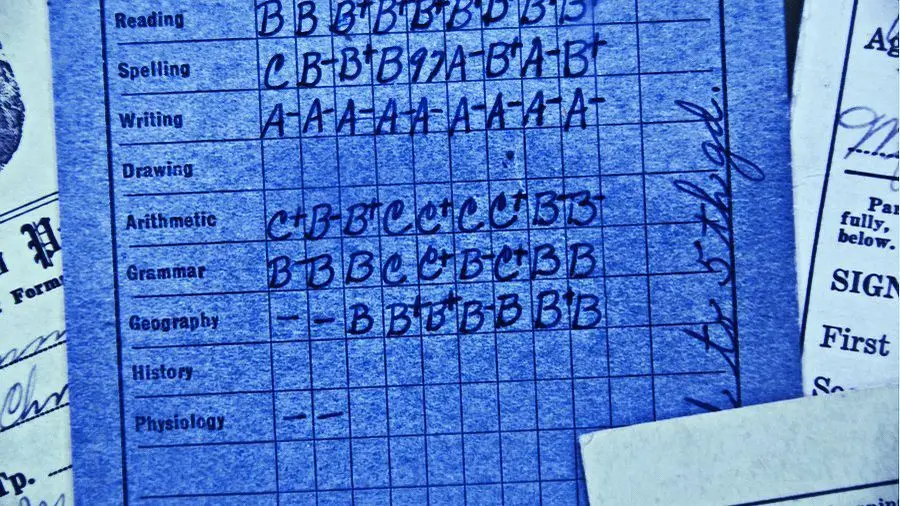 Reading B B B+ B+ B+ B+ B B+ B
Spelling C B- B+ B 97 A- B+ A- B+
Writing A- A- A- A- A- A- A- A- A-
Drawing
Arithmetic C+ B- B+ C C+ C C+ B- B-
Grammar B- B B C C+ B- C+ B B
Geography — — B B+ B+ B- B B+ B
History
Physiology — —
to 5th gd.
Form
Tp.
Ag
fully,
below.
SIGN
First